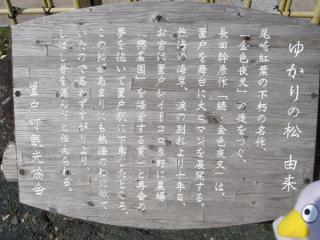 ゆかりの松 由来
尾崎紅葉の不朽の名作、
「金色夜叉」の後をつぐ、
長田幹彦作「続、金色夜叉」は、
置戸を舞台に大ロマンを展開する。
熱海の海岸、涙の別れより十年目、
お宮は置戸シイトコロ原野に農場
「興農園」を経営する貫一と再会の
夢を描いて置戸駅に下車したところ、
この松があまりにも熱海の松に似て
いたので思わずすがりより、
しばし昔を偲んだと伝えられる。
置戸町観光協会